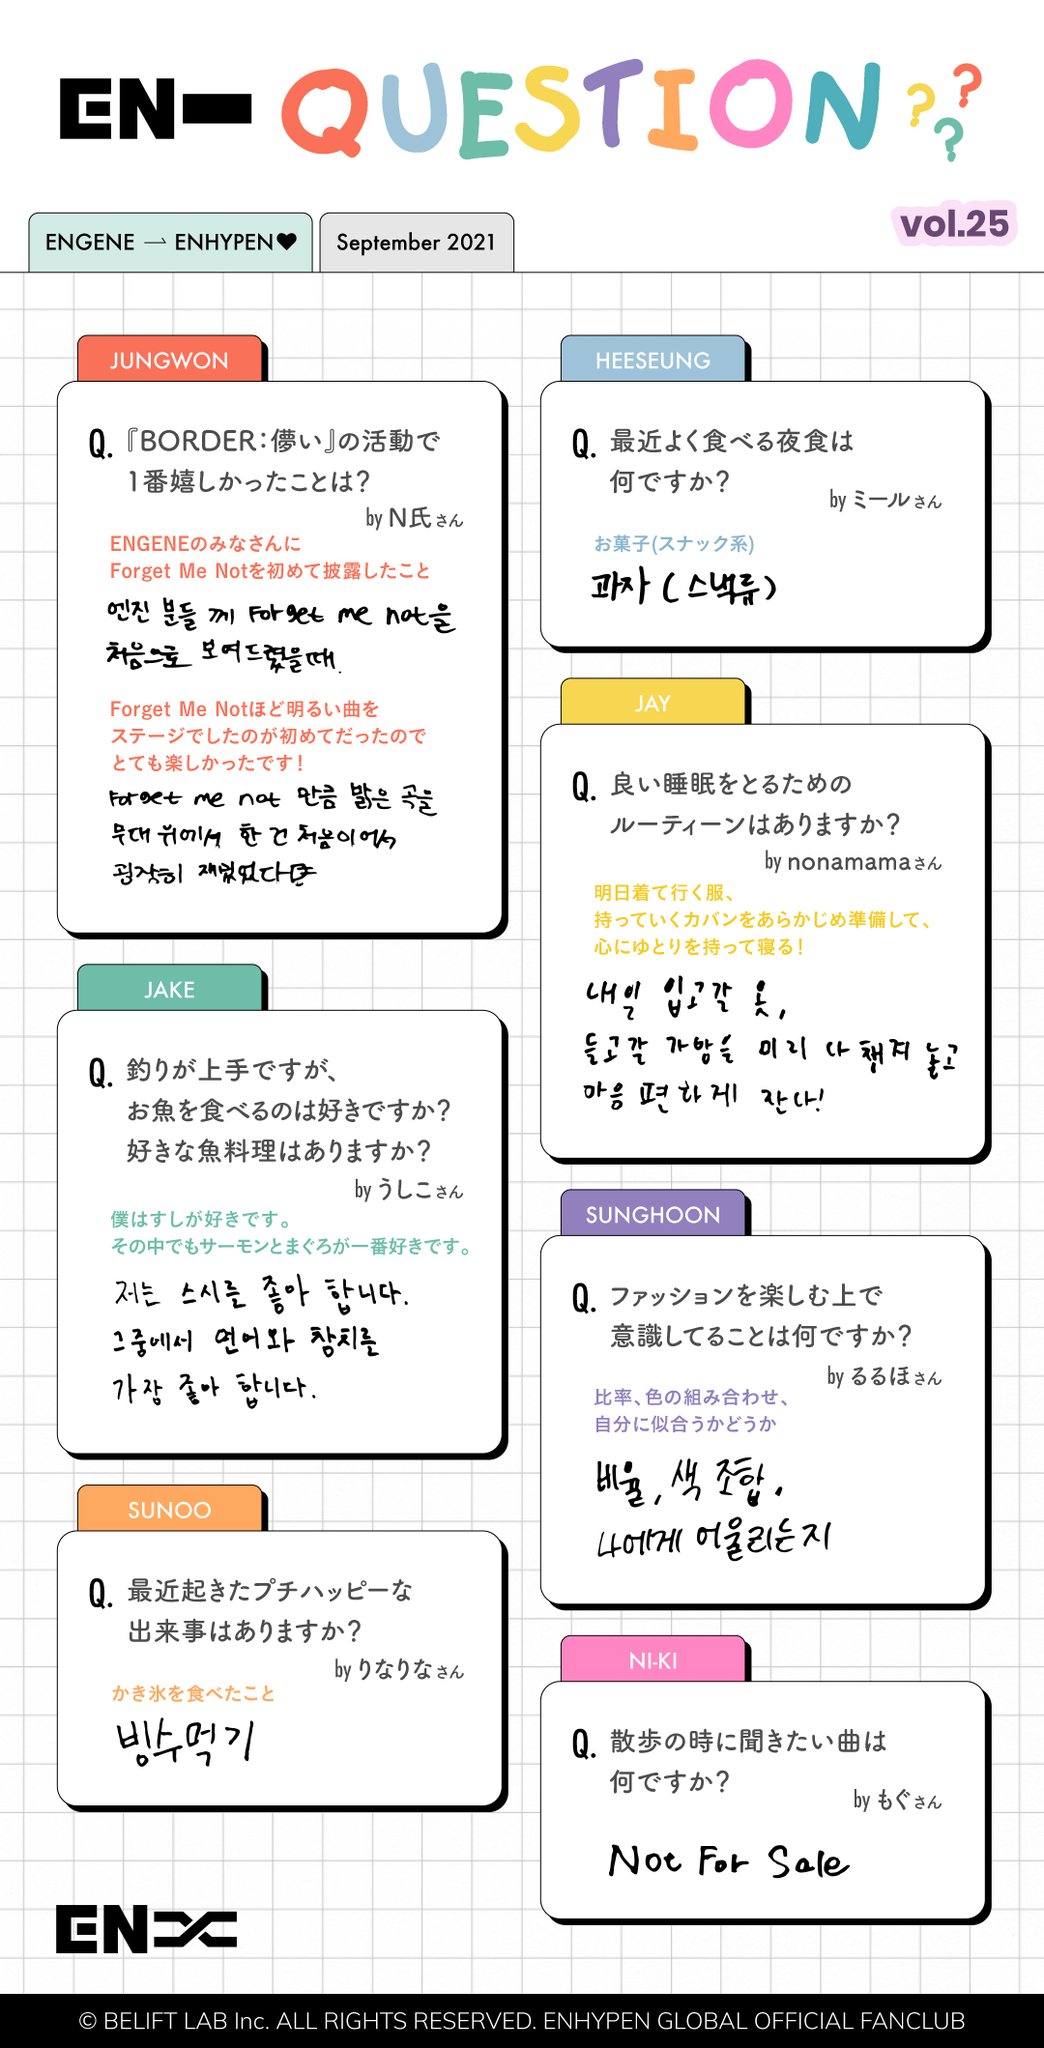 EN- QUESTION ???
vol.25
ENGENE → ENHYPEN♥
September 2021
JUNGWON
Q. 『BORDER：儚い』の活動で
1番嬉しかったことは？
by N氏さん
ENGENEのみなさんに
Forget Me Notを初めて披露したこと
엔진 분들 께 Forget me not을
처음으로 보여드렸을때.
Forget Me Notほど明るい曲を
ステージでしたのが初めてだったので
とても楽しかったです！
Forget me not 만큼 밝은 곡을
무대 위에서 한 건 처음이어서
굉장히 재밌었다
JAKE
Q. 釣りが上手ですが、
お魚を食べるのは好きですか？
好きな魚料理はありますか？
by うしこさん
僕はすしが好きです。
その中でもサーモンとまぐろが一番好きです。
저는 스시를 좋아 합니다.
그중에서 연어와 참치를
가장 좋아 합니다.
SUNOO
Q. 最近起きたプチハッピーな
出来事はありますか？
by りなりなさん
かき氷を食べたこと
빙수먹기
HEESEUNG
Q. 最近よく食べる夜食は
何ですか？
by ミールさん
お菓子(スナック系)
과자 (스낵류)
JAY
Q. 良い睡眠をとるための
ルーティーンはありますか？
by nonamamaさん
明日着て行く服、
持っていくカバンをあらかじめ準備して、
心にゆとりを持って寝る！
내일 입고갈 옷,
들고갈 가방을 미리 다 챙겨 놓고
마음 편하게 잔다!
SUNGHOON
Q. ファッションを楽しむ上で
意識してることは何ですか？
by るるほさん
比率、色の組み合わせ、
自分に似合うかどうか
비율, 색 조합,
나에게 어울리는지
NI-KI
Q. 散歩の時に聞きたい曲は
何ですか？
by もぐさん
Not For Sale
EN
© BELIFT LAB Inc. ALL RIGHTS RESERVED. ENHYPEN GLOBAL OFFICIAL FANCLUB